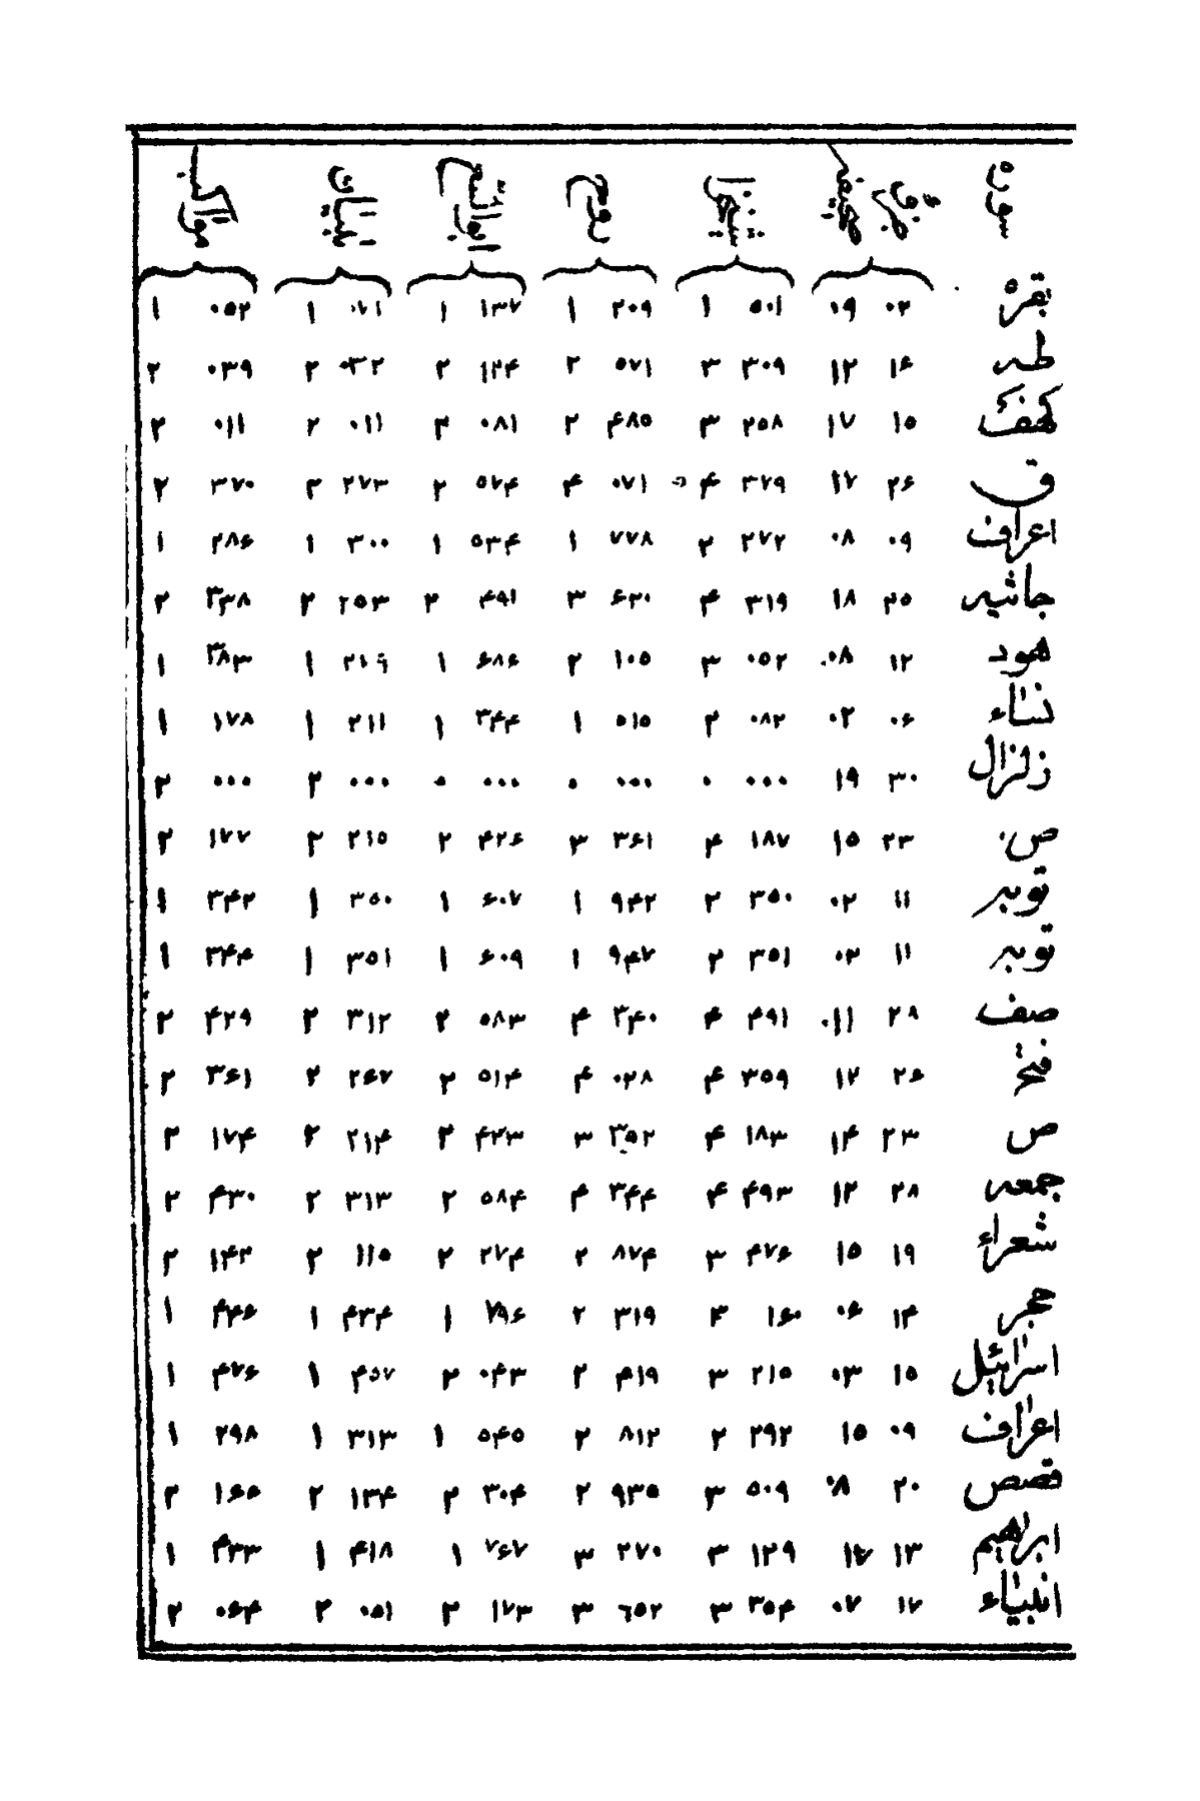 سوره
بقره ۰۲ ۰۹ ۵۰۱ ۱ ۲۰۹ ۱ ۱۳۷ ۱ ۱ ۰۵۲ ۱
طه ۱۶ ۱۲ ۳۰۹ ۳ ۵۷۱ ۲ ۱۲۴ ۲ ۰۳۲ ۲ ۰۳۹ ۲
کهف ۱۵ ۱۷ ۲۵۸ ۳ ۴۸۵ ۲ ۰۸۱ ۲ ۰۱۱ ۲ ۰۱۱ ۲
ق ۲۶ ۱۷ ۳۷۹ ۴ ۰۷۱ ۴ ۵۷۴ ۲ ۲۷۳ ۲ ۳۷۰ ۲
اعراف ۰۹ ۰۸ ۲۷۲ ۲ ۷۷۸ ۱ ۵۳۴ ۱ ۳۰۰ ۱ ۲۸۶ ۱
جاثیه ۲۵ ۱۸ ۳۱۹ ۴ ۶۲۰ ۳ ۴۹۱ ۲ ۲۵۳ ۲ ۳۳۸ ۲
هود ۱۲ ۰۸ ۰۵۲ ۳ ۱۰۵ ۲ ۶۸۶ ۱ ۱ ۳۸۳ ۱
نساء ۰۶ ۰۲ ۰۸۲ ۲ ۵۱۵ ۱ ۳۴۴ ۱ ۲۱۱ ۱ ۱۷۸ ۱
زلزال ۳۰ ۱۹ ۰۰۰ ۰ ۰۰۰ ۰ ۰۰۰ ۰ ۰۰۰ ۲ ۰۰۰ ۲
ص ۲۳ ۱۵ ۱۸۷ ۴ ۳۶۱ ۳ ۴۲۶ ۲ ۲۱۵ ۲ ۱۷۷ ۲
توبه ۱۱ ۰۲ ۳۵۰ ۲ ۹۴۲ ۱ ۶۰۷ ۱ ۳۵۰ ۱ ۳۴۲ ۱
توبه ۱۱ ۰۲ ۳۵۱ ۲ ۹۴۷ ۱ ۶۰۹ ۱ ۳۵۱ ۱ ۳۴۴ ۱
صف ۲۸ ۱۱ ۴۹۱ ۴ ۳۴۰ ۴ ۵۸۳ ۲ ۳۱۲ ۲ ۴۲۹ ۲
فتح ۲۶ ۱۲ ۳۵۹ ۴ ۰۲۸ ۴ ۵۱۴ ۲ ۲۶۷ ۲ ۳۶۱ ۲
ص ۲۳ ۱۴ ۱۸۳ ۴ ۳۵۲ ۳ ۴۲۳ ۲ ۲۱۴ ۲ ۱۷۴ ۲
جمعه ۲۸ ۱۲ ۴۹۳ ۴ ۳۴۴ ۴ ۵۸۴ ۲ ۳۱۳ ۲ ۴۳۰ ۲
شعراء ۱۹ ۱۵ ۴۷۶ ۳ ۸۷۴ ۲ ۲۷۴ ۲ ۱۱۵ ۲ ۱۴۲ ۲
حجر ۱۴ ۰۶ ۱۶۰ ۳ ۳۱۹ ۲ ۷۹۶ ۱ ۴۳۴ ۱ ۴۴۶ ۱
اسرائیل ۱۵ ۰۳ ۲۱۵ ۳ ۴۱۹ ۲ ۰۴۳ ۲ ۴۵۷ ۱ ۴۷۶ ۱
اعراف ۰۹ ۱۵ ۲۹۲ ۲ ۸۱۲ ۲ ۵۴۵ ۱ ۳۱۳ ۱ ۲۹۸ ۱
قصص ۲۰ ۰۸ ۵۰۹ ۳ ۹۳۵ ۲ ۳۰۴ ۲ ۱۳۴ ۲ ۱۶۶ ۲
ابراهیم ۱۳ ۱۷ ۱۲۹ ۳ ۲۷۰ ۳ ۷۶۷ ۱ ۴۱۸ ۱ ۴۳۳ ۱
انبیاء ۱۷ ۰۷ ۳۵۴ ۳ ۶۵۲ ۳ ۱۷۳ ۲ ۰۵۱ ۲ ۰۶۴ ۲